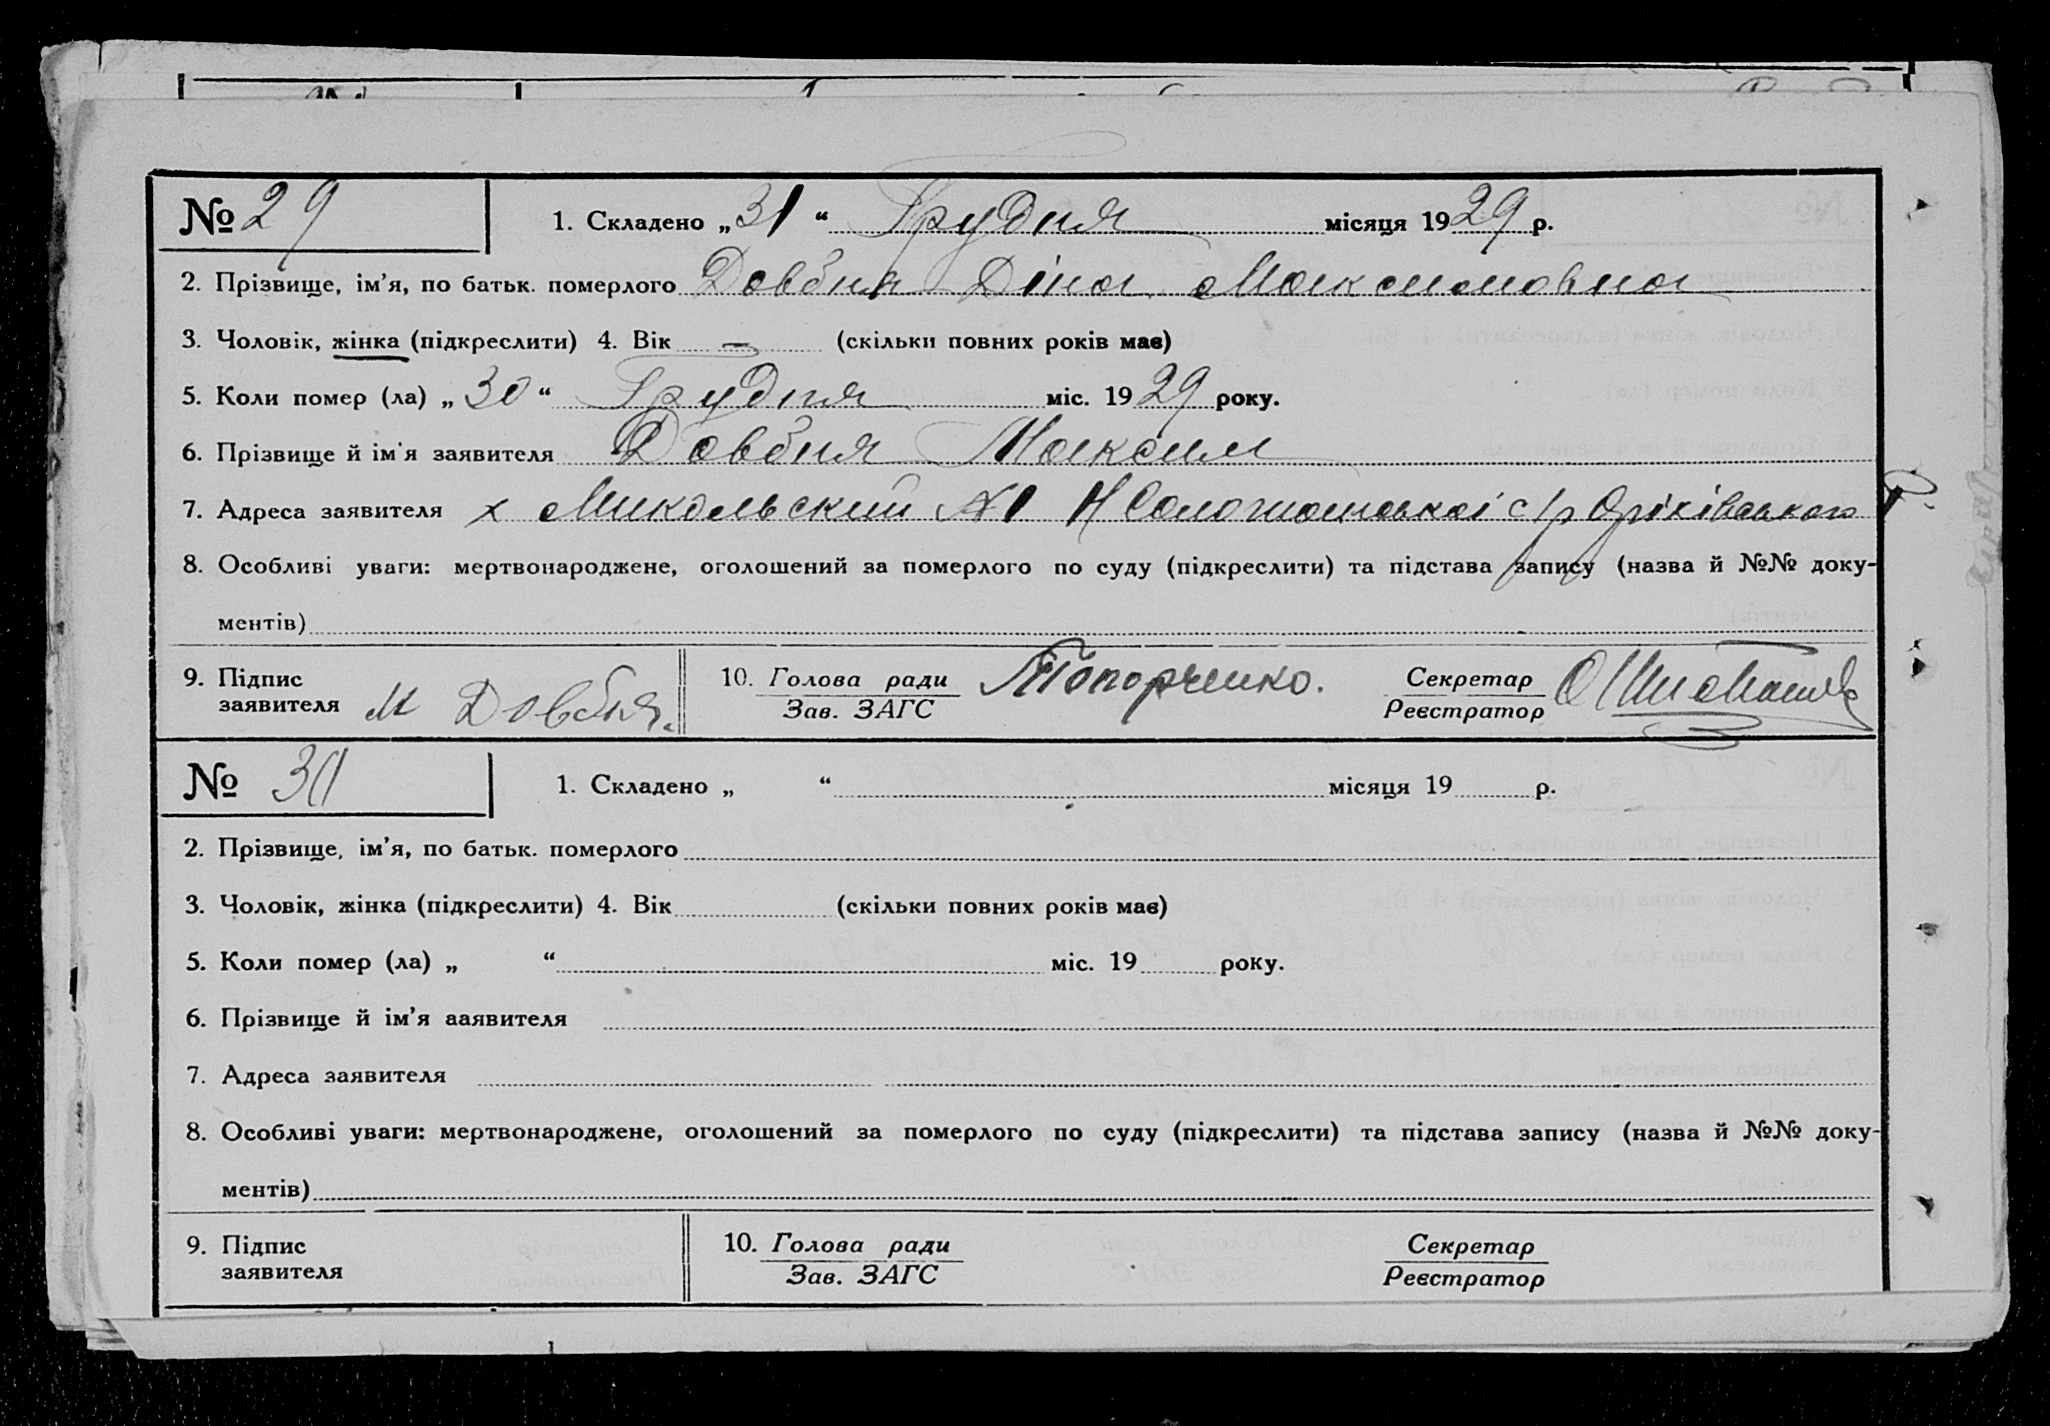 № 29 1. Складено „31“ Грудня місяця 1929 р.
2. Прізвище, ім’я, по батьк. померлого Довбня Діна Максимовна
3. Чоловік, жінка (підкреслити) 4. Вік — (скільки повних років має)
5. Коли помер (ла) „30“ Грудня міс. 1929 року.
6. Прізвище й ім’я заявителя Довбня Максим
7. Адреса заявителя х Микольский №1 с/р Оріхівського Р.
8. Особливі уваги: мертвонароджене, оголошений за померлого по суду (підкреслити) та підстава запису (назва й №№ доку-
ментів)
9. Підпис заявителя М Довбня. 10. Голова ради Топорченко. Секретар
Зав. ЗАГС Реєстратор
№ 30 1. Складено „ “ місяця 19 р.
2. Прізвище, ім’я, по батьк. померлого
3. Чоловік, жінка (підкреслити) 4. Вік (скільки повних років має)
5. Коли помер (ла) „ “ міс. 19 року.
6. Прізвище й ім’я ааявителя
7. Адреса заявителя
8. Особливі уваги: мертвонароджене, оголошений за померлого по суду (підкреслити) та підстава запису (назва й №№ доку-
ментів)
9. Підпис 10. Голова ради Секретар
заявителя Зав. ЗАГС Реєстратор